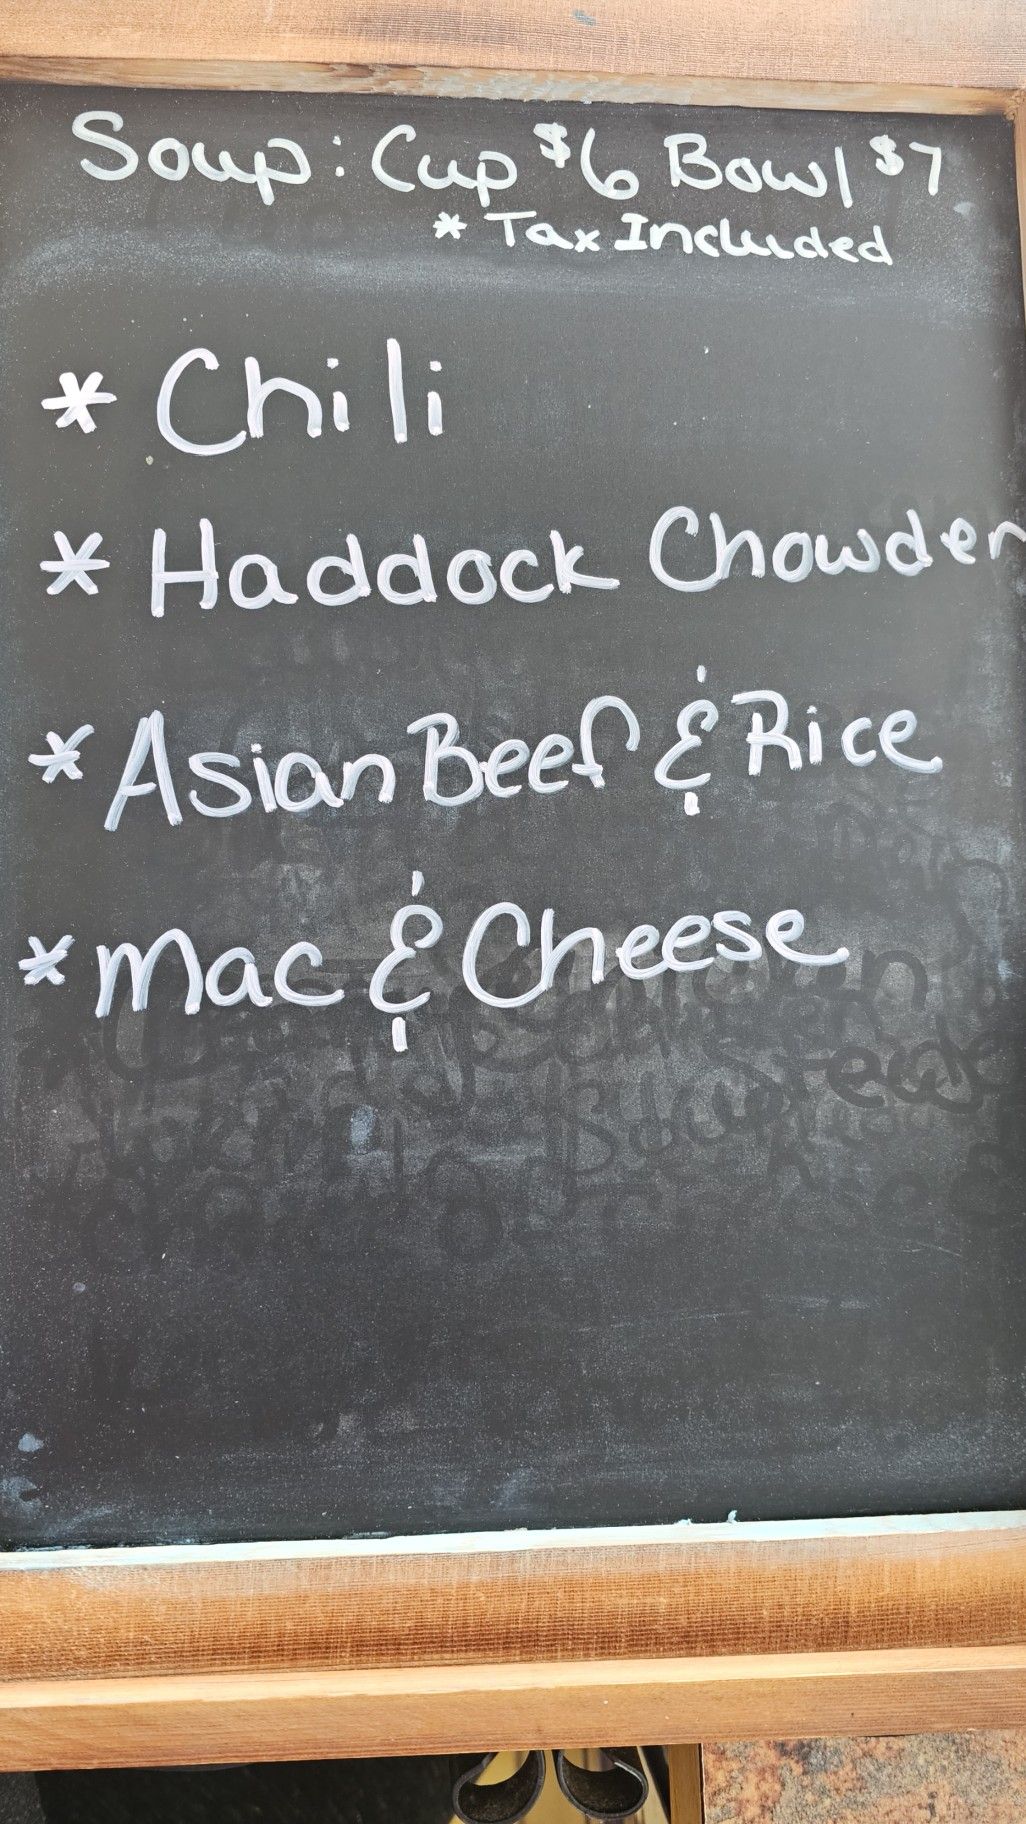 Soup: Cup $6 Bowl $7
* Tax Included
* Chili
* Haddock Chowder
* Asian Beef & Rice
* Mac & Cheese